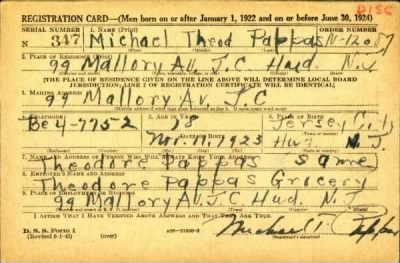 DISC
REGISTRATION CARD—(Men born on or after January 1, 1922 and on or before June 30, 1924)
SERIAL NUMBER 1. NAME (Print) ORDER NUMBER
N 347 Michael Theod Pappas N-12087
2. PLACE OF RESIDENCE (Print)
99 Mallory Av. J.C Hud. N.J
[THE PLACE OF RESIDENCE GIVEN ON THE LINE ABOVE WILL DETERMINE LOCAL BOARD
JURISDICTION; LINE 2 OF REGISTRATION CERTIFICATE WILL BE IDENTICAL]
3. MAILING ADDRESS
99 Mallory Av. J.C
4. TELEPHONE 5. AGE IN YEARS 6. PLACE OF BIRTH
Be 4-7752 18 Jersey City
DATE OF BIRTH
Nov. 17, 1923 Hud. N.J.
7. NAME AND ADDRESS OF PERSON WHO WILL ALWAYS KNOW YOUR ADDRESS
Theodore Pappas same
8. EMPLOYER'S NAME AND ADDRESS
Theodore Pappas Grocery
9. PLACE OF EMPLOYMENT OR BUSINESS
99 Mallory Av. J.C Hud. N.J.
I AFFIRM THAT I HAVE VERIFIED ABOVE ANSWERS AND THAT THEY ARE TRUE.
D. S. S. Form 1
(Revised 6-1-42) (over) Michael T. Pappas